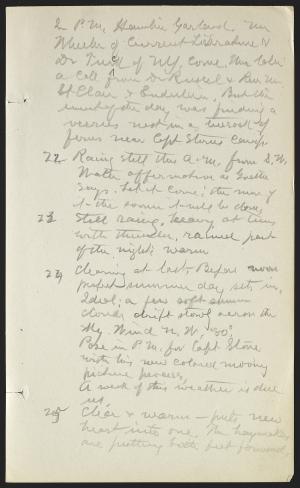 In P.M. Hamlin Garland, Mr
Wheeler of Current Literature &
Dr of N.Y. come. Mr
a call from Dr & Mr
St Clair & But the
event of the day was finding a
veeries nest in a tussock of
ferns near Capt Stones camp.
22 Rainy still this A.M. from S.W.
Water as
says. Let it come; the more of
it the sooner it will be done,
23 Still rainy, heavy at times
with thunder, rained part
of the night; warm
24 Clearing at last. Before noon
perfect summer day sets in,
Ideal; a few soft summer
clouds drift slowly across the
sky. Wind N.W. 80°
Pose in P.M. for Capt Stone
with his new colored moving
picture process,
A week of this weather is due
us,
25 Clear & warm — puts new
heart into one. The haymakers
are putting best feet forward,